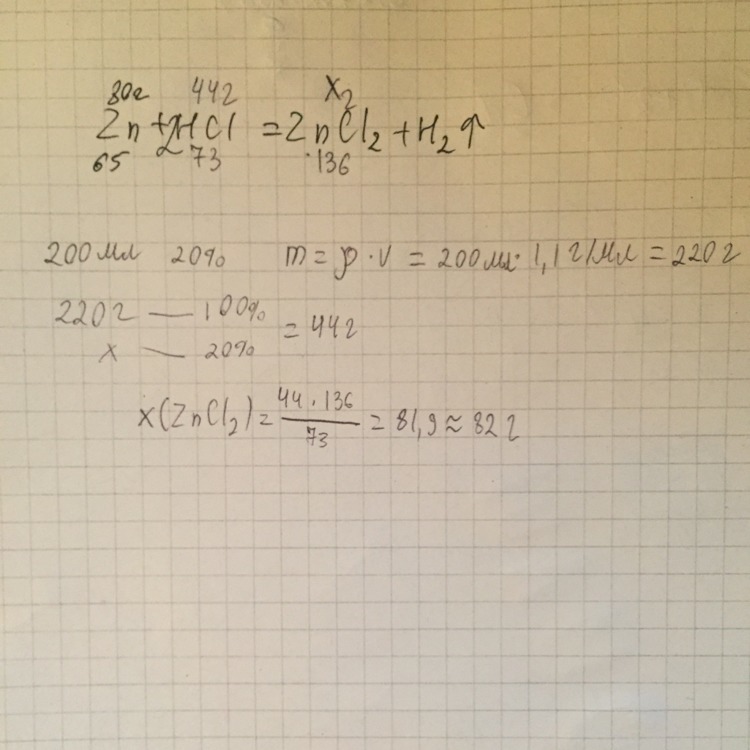 80г 44г Xг
Zn + 2HCl = ZnCl₂ + H₂↑
65 73 136
200мл 20% m = ρ · V = 200мл · 1,1 г/мл = 220г
220г — 100%
x — 20% = 44г
x(ZnCl₂) = 44 · 136 / 73 = 81,9 ≈ 82г